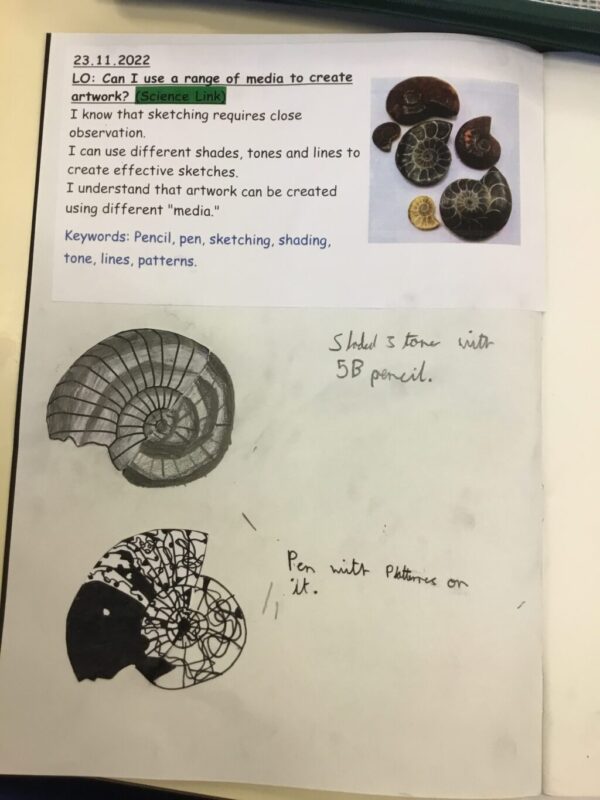 23.11.2022
LO: Can I use a range of media to create
artwork? (Science Link)
I know that sketching requires close
observation.
I can use different shades, tones and lines to
create effective sketches.
I understand that artwork can be created
using different "media."
Keywords: Pencil, pen, sketching, shading,
tone, lines, patterns.
Shaded 3 tones with
5B pencil.
Pen with Patterns on
it.